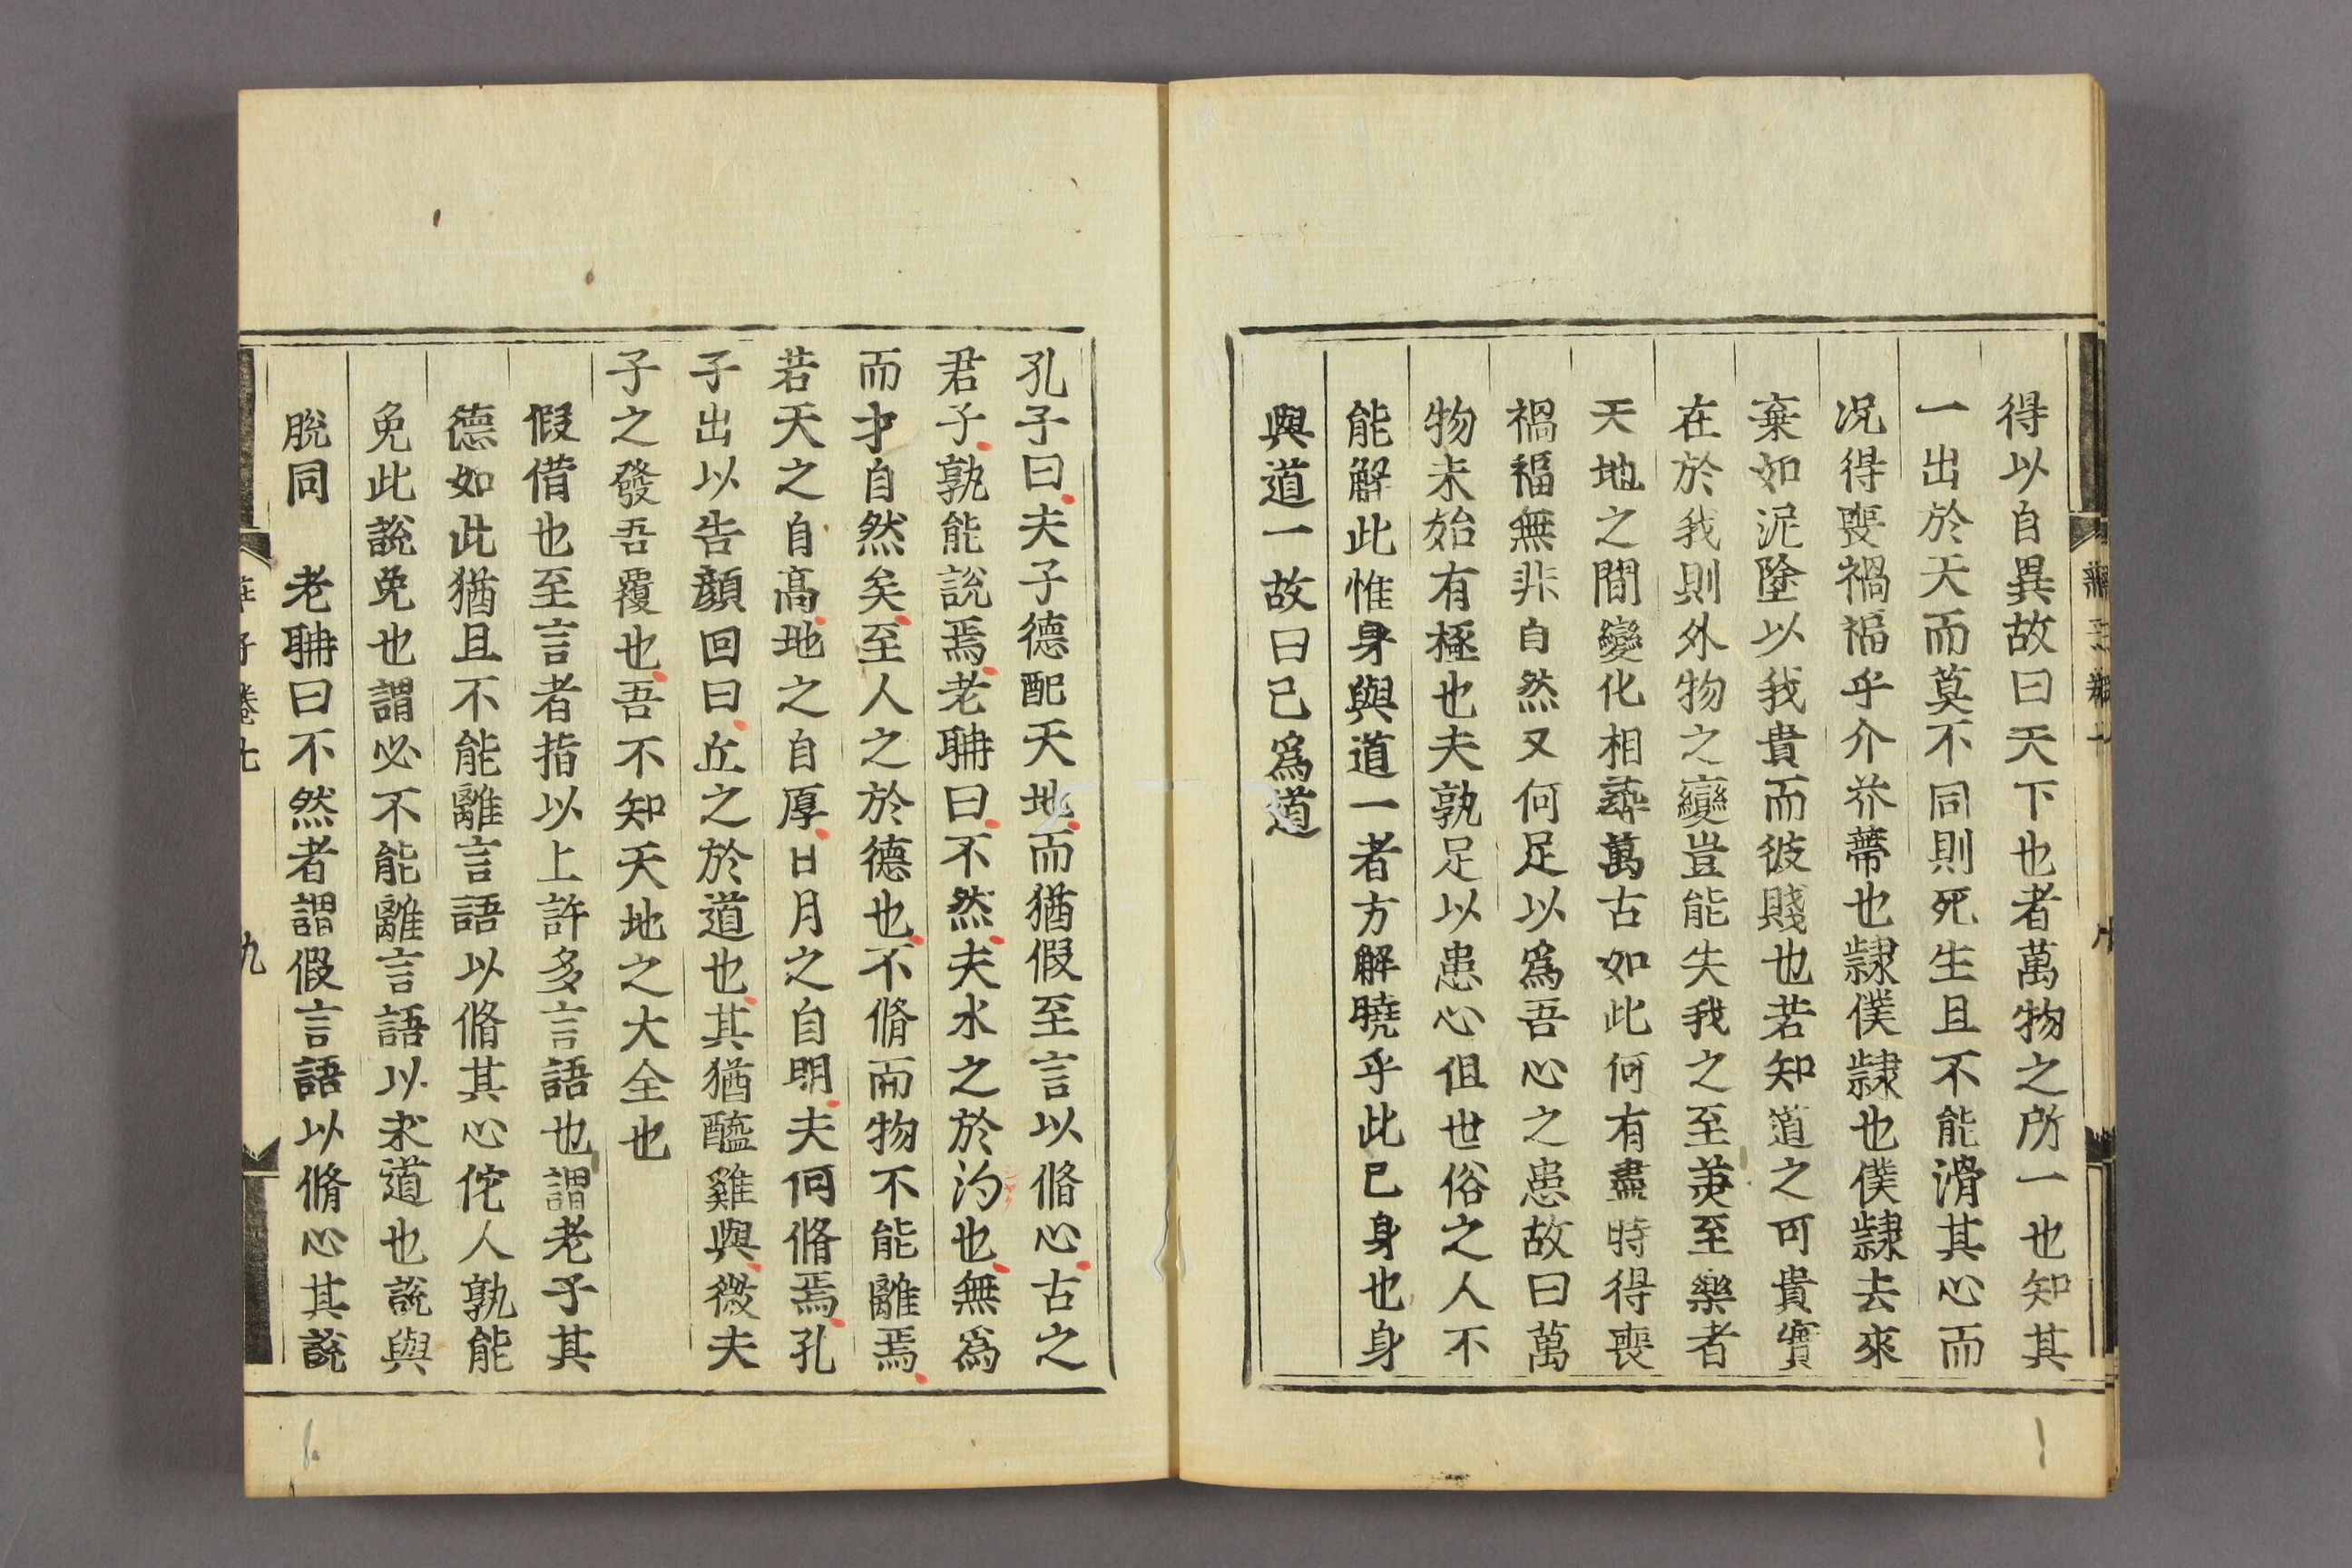 得以自異故曰天下也者萬物之所一也知其
一出於天而莫不同則死生且不能滑其心而
况得喪禍福乎介芥蔕也隷僕隷也僕隷去來
棄如泥塗以我貴而彼賤也若知道之可貴實
在於我則外物之變豈能失我之至羙至樂者
天地之間變化相尋萬古如此何有盡時得喪
禍福無非自然又何足以爲吾心之患故曰萬
物未始有極也夫孰足以患心但世俗之人不
能解此惟身與道一者方解曉乎此已身也身
與道一故曰已爲道
孔子曰夫子德配天地而猶假至言以脩心古之
君子孰能說焉老聃曰不然夫水之於汋也無爲
而才自然矣至人之於德也不脩而物不能離焉
若天之自高地之自厚日月之自明夫何脩焉孔
子出以告顔回曰丘之於道也其猶醯雞與微夫
子之發吾覆也吾不知天地之大全也
假借也至言者指以上許多言語也謂老子其
德如此猶且不能離言語以脩其心佗人孰能
免此說免也謂必不能離言語以求道也說與
脫同　老聃曰不然者謂假言語以脩心其說
莊子卷七
九